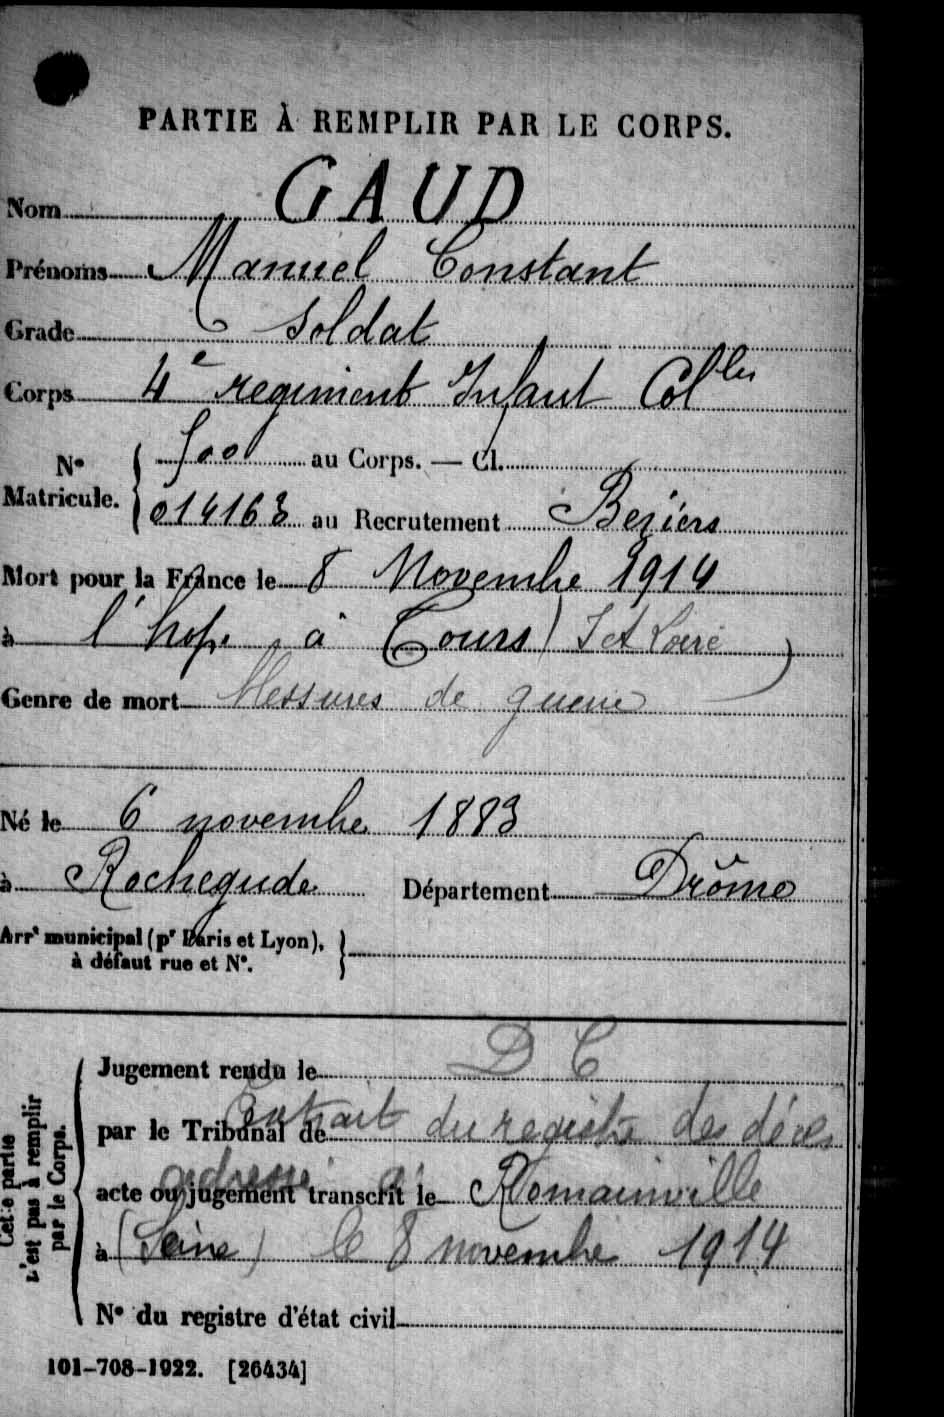 PARTIE À REMPLIR PAR LE CORPS.
Nom GAUD
Prénoms Manuel Constant
Grade Soldat
Corps 4e regiment Infant Colles
No Matricule. { 500 au Corps. — Cl.
014163 au Recrutement Beziers
Mort pour la France le 8 Novembre 1914
à l'hop. à Tours (I et Loire)
Genre de mort blessures de guerre
Né le 6 novembre 1883
à Rochegude Département Drôme
Arrt municipal (pr Paris et Lyon),
à défaut rue et No.
Cette partie
n'est pas à remplir
par le Corps.
Jugement rendu le D C
par le Tribunal de Extrait du registre des décès
acte ou jugement transcrit le adressé à Romainville
à (Seine) le 8 novembre 1914
No du registre d'état civil
101-708-1922. [26434]